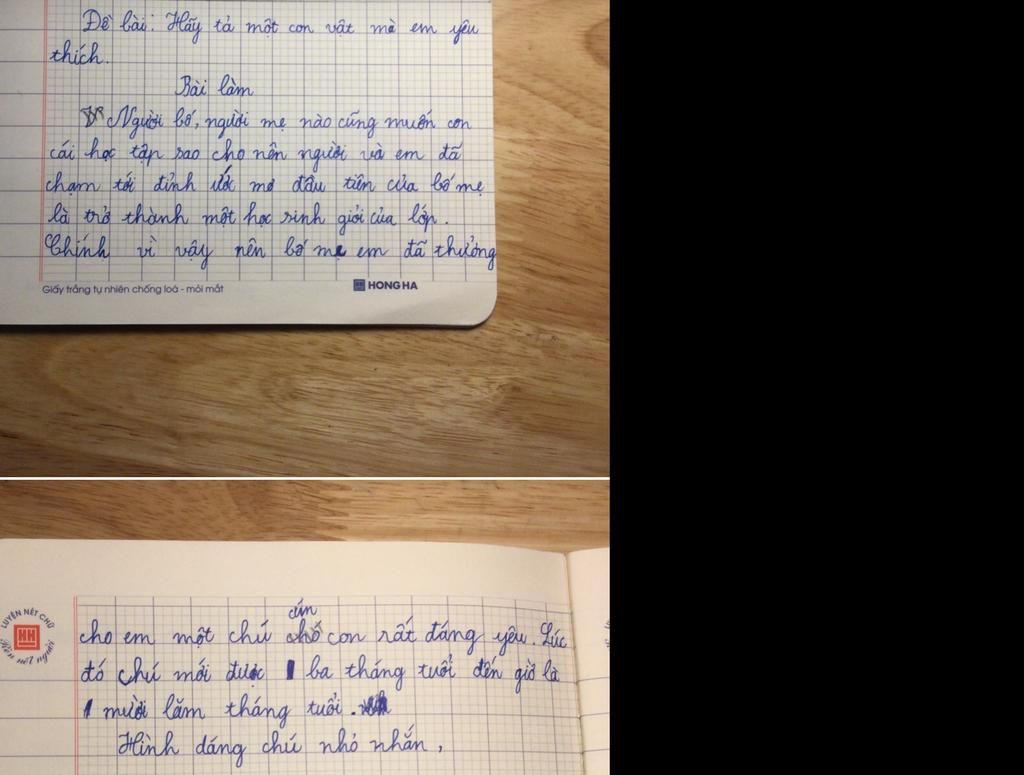 Đề bài: Hãy tả một con vật mà em yêu
thích.
Bài làm
Người bố, người mẹ nào cũng muốn con
cái học tập sao cho nên người và em đã
chạm tới đỉnh ước mơ đầu tiên của bố mẹ
là trở thành một học sinh giỏi của lớp.
Chính vì vậy nên bố mẹ em đã thưởng
Giấy trắng tự nhiên chống loá - mỏi mắt
HONG HA
LUYỆN NÉT CHỮ
Rèn nết người
cún
cho em một chú chó con rất đáng yêu. Lúc
đó chú mới được ba tháng tuổi đến giờ là
mười lăm tháng tuổi.
Hình dáng chú nhỏ nhắn,